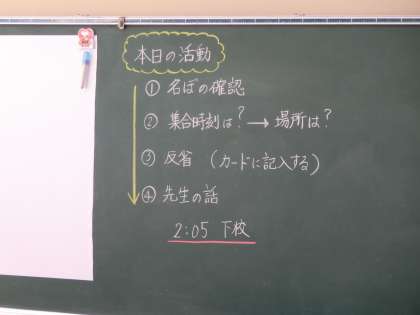 本日の活動
① 名ぼの確認
② 集合時刻は?→場所は?
③ 反省 (カードに記入する)
④ 先生の話
2:05 下校